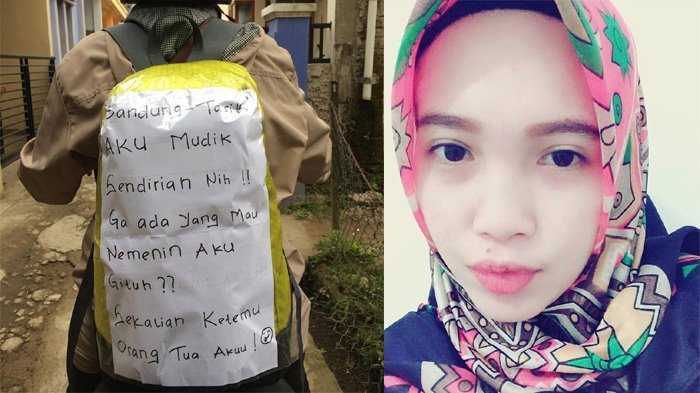 Bandung - Tasik
AKU Mudik
Sendirian Nih !!
Ga ada yang Mau
Nemenin Aku
Gituh ??
Sekalian Ketemu
Orang Tua Akuu !